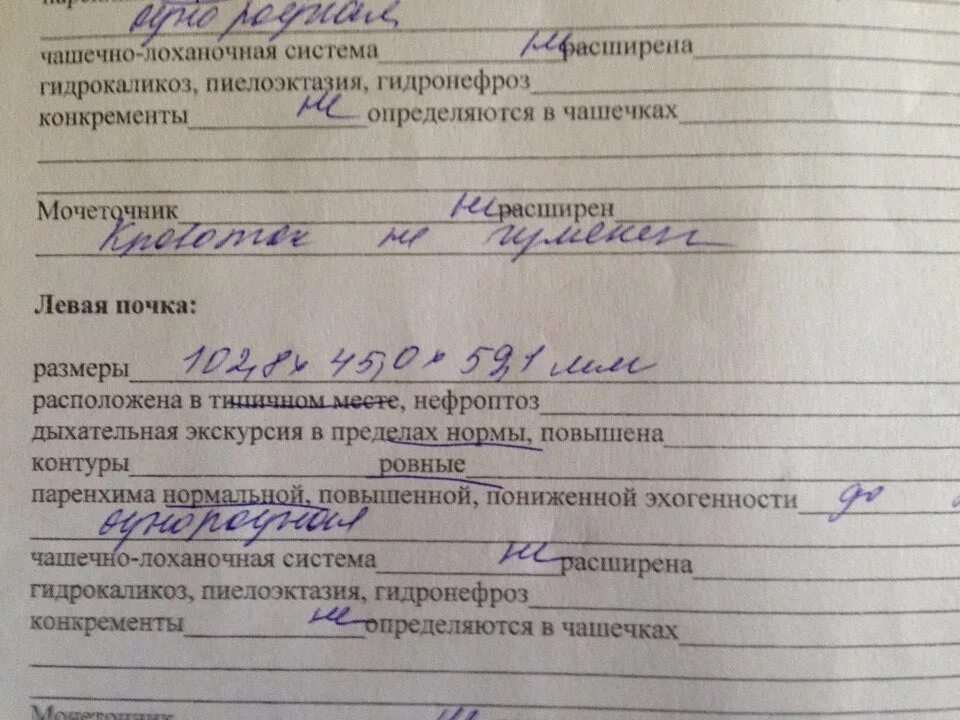 однородная
чашечно-лоханочная система не расширена
гидрокаликоз, пиелоэктазия, гидронефроз
конкременты не определяются в чашечках
Мочеточник не расширен
Кровоток не
Левая почка:
размеры 102,8 x 45,0 x 59,1 мм
расположена в типичном месте, нефроптоз
дыхательная экскурсия в пределах нормы, повышена
контуры ровные
паренхима нормальной, повышенной, пониженной эхогенности до
однородная
чашечно-лоханочная система не расширена
гидрокаликоз, пиелоэктазия, гидронефроз
конкременты не определяются в чашечках
Мочеточник